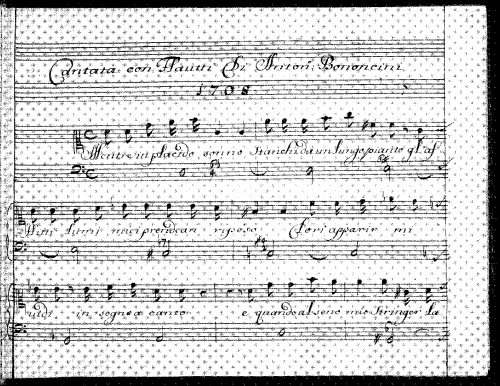 Cantata con Flautti Di Anton: Bononcini
1708
Mentre in placido sonno stanchi da un lungo pianto gl'af
flitti lumi miei prendean riposo Clori apparir mi
vidi in sogno a canto e quando al seno mio stringer la